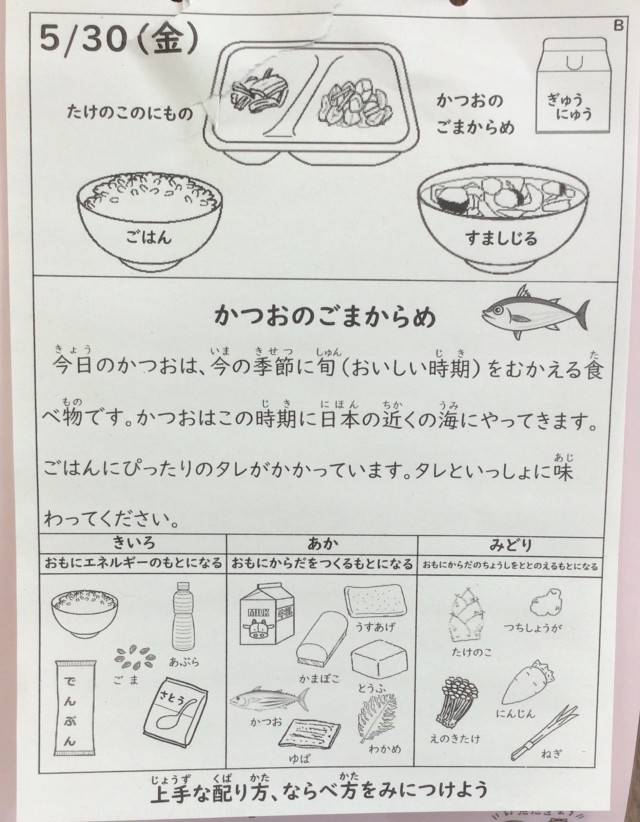 5/30(金)
B
たけのこのにもの
かつおの
ごまからめ
ぎゅう
にゅう
ごはん
すましじる
かつおのごまからめ
きょう いま きせつ しゅん じき た
今日のかつおは、今の季節に旬(おいしい時期)をむかえる食
もの じき にほん ちか うみ
べ物です。かつおはこの時期に日本の近くの海にやってきます。
あじ
ごはんにぴったりのタレがかかっています。タレといっしょに味
わってください。
きいろ
おもにエネルギーのもとになる
ごま
あぶら
でんぷん
さとう
あか
おもにからだをつくるもとになる
MILK
うすあげ
かまぼこ
とうふ
かつお
ゆば
わかめ
みどり
おもにからだのちょうしをととのえるもとになる
たけのこ
つちしょうが
えのきたけ
にんじん
ねぎ
じょうず くば かた かた
上手な配り方、ならべ方をみにつけよう